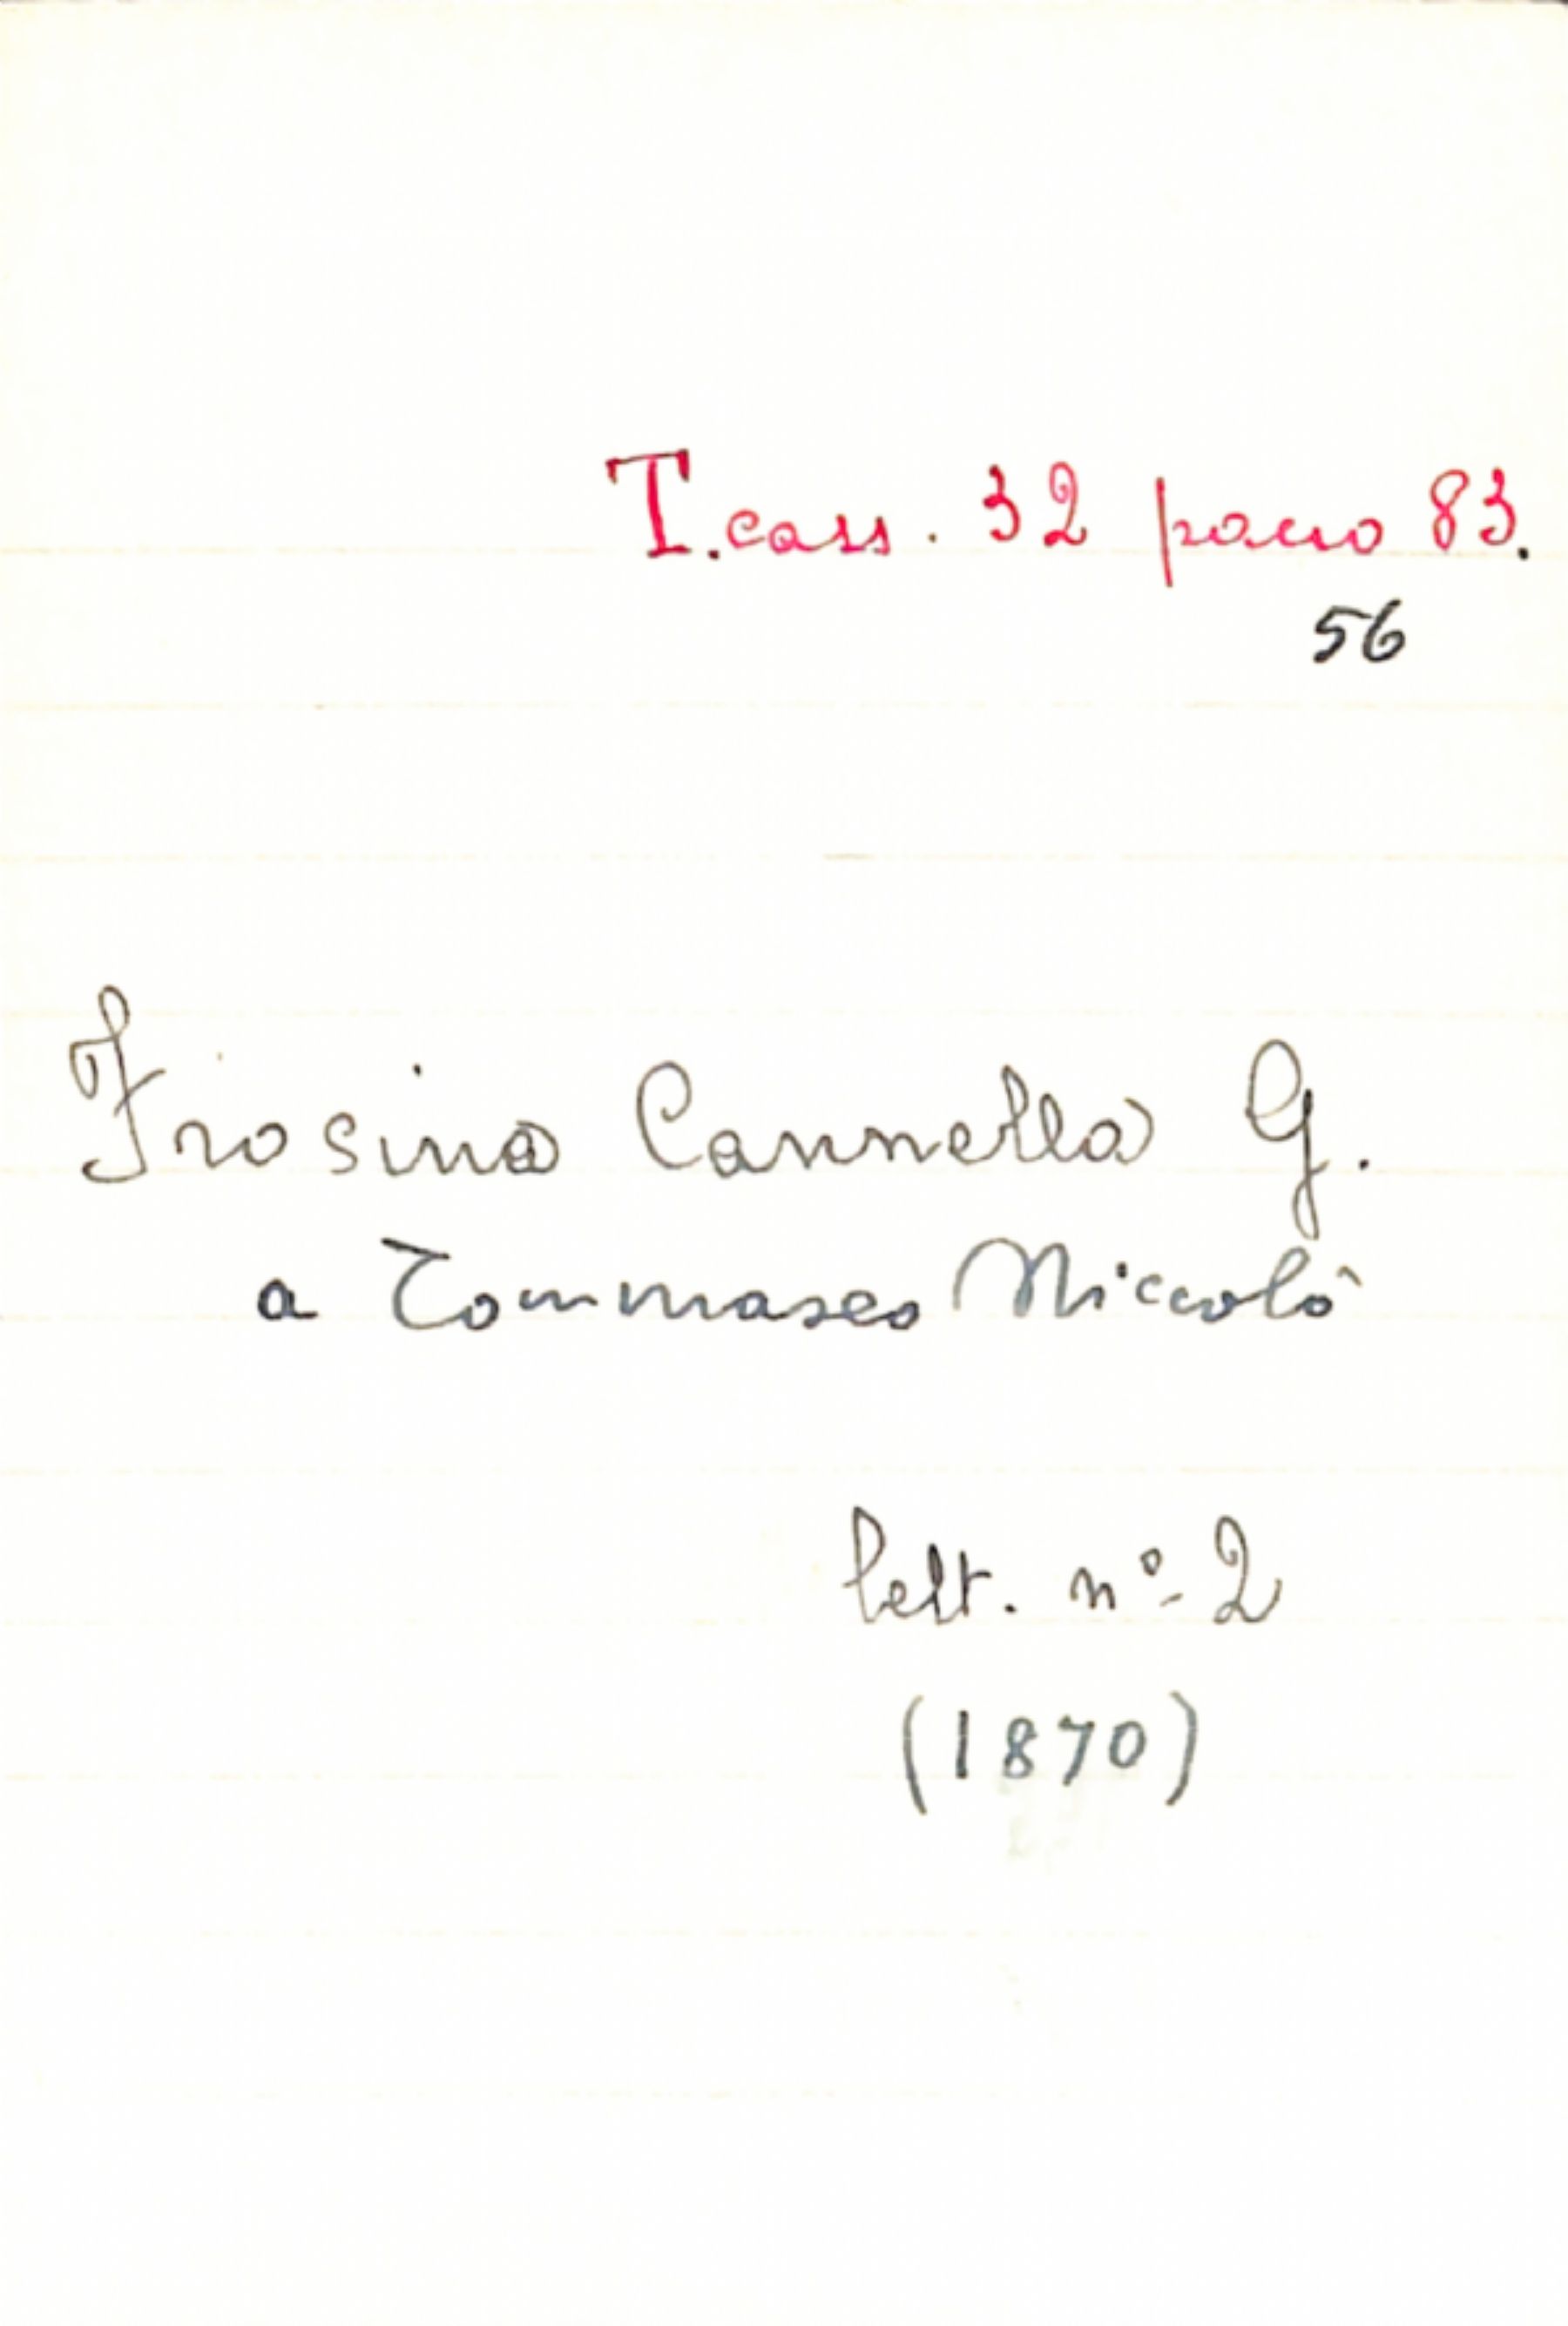 T. cass. 32 pacco 83.
56
Frosina Cannella G.
a Tommaseo Niccolò
lett. nº 2
(1870)